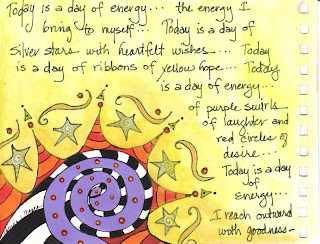 Today is a day of energy... the energy I
bring to myself... Today is a day of
silver stars with heartfelt wishes... Today
is a day of ribbons of yellow hope... Today
is a day of energy...
of purple swirls
of laughter and
red circles of
desire...
Today is a day
of
Energy...
I reach outward
with goodness-